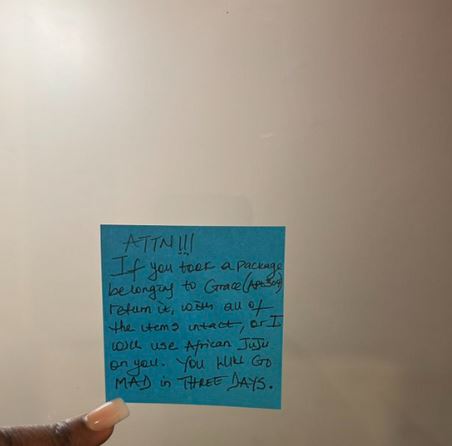 ATTN!!!
If you took a package
belonging to Grace (Apt 309)
return it, with all of
the items intact, or I
will use African JuJu
on you. You Will Go
MAD in THREE DAYS.